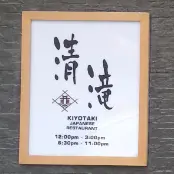 清滝
KIYOTAKI
JAPANESE
RESTAURANT
12:00pm - 3:00pm
6:30pm - 11:00pm